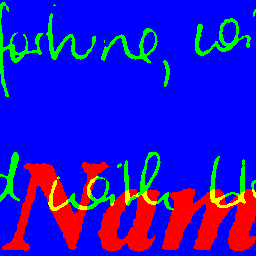 fortune, wi
d with be
Nam